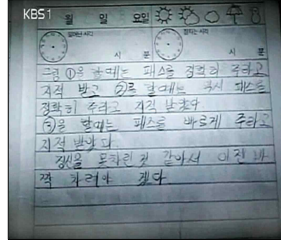 KBS1
월 일 요일
일어난 시각 잠자는 시각
시 분 시 분
그림 ①을 할때는 패스를 정확히 주라고
지적 받고 ②를 할때는 패스를
정확히 주라고 지적 받았다
을 할때는 패스를 빠르게 주라고
지적 받았다
정신을 놓 것 같아서 이젠 바
짝 차려야 겠다